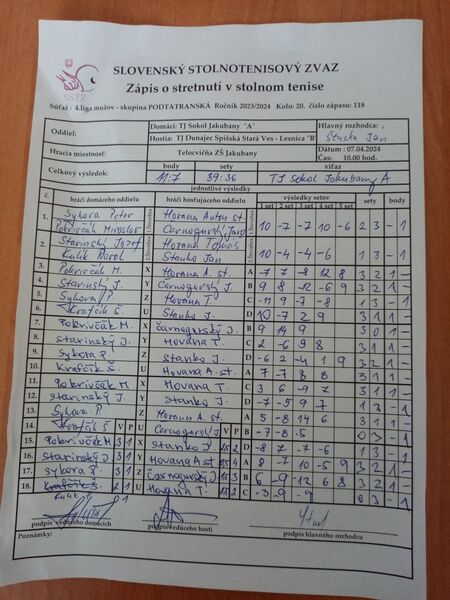 SSTZ
SLOVENSKÝ STOLNOTENISOVÝ ZVAZ
Zápis o stretnutí v stolnom tenise
Súťaž : 4.liga mužov - skupina PODTATRANSKÁ Ročník 2023/2024 Kolo: 20. číslo zápasu: 118
Oddiel:
Domáci: TJ Sokol Jakubany "A"
Hlavný rozhodca:
Hostia: TJ Dunajec Spišská Stará Ves - Lesnica "B"
Hracia miestnosť:
Telocvičňa ZŠ Jakubany
Dátum : 07.04.2024
Čas: 10.00 hod.
Celkový výsledok:
body sety víťaz
11:7 39:36 TJ Sokol Jakubany A
jednotlivé výsledky
č. hráči domáceho oddielu hráči hosťujúceho oddielu výsledky setov sety body
1 set 2 set 3 set 4 set 5 set
1. Sykora Peter Hovana Anton st.
Pokrivčák Miroslav Čarnogurský Jaroslav 10 -7 -7 10 -6 2 3 - 1
2. Starinský Jozef Hovana Tomáš
Kulik Karol Stanko Jan 10 -4 -4 -6 1 3 - 1
3. Pokrivčák M. X Hovana A. st. A -7 7 -8 12 8 3 2 1 -
4. Starinský J. Y Čarnogurský J. B 9 8 -12 -6 9 3 2 1 -
5. Sykora P. Z Hovana T. C -11 9 -7 -8 1 3 - 1
6. Krafčík Š. U Stanko J. D 10 -7 2 9 3 1 1 -
7. Pokrivčák M. X Čarnogurský J. B 9 14 9 3 0 1 -
8. Starinský J. Y Hovana T. C 2 -6 9 8 3 1 1 -
9. Sykora P. Z Stanko J. D -6 2 -4 1 9 3 2 1 -
10. Krafčík Š. U Hovana A. st. A 7 -7 8 8 3 1 1 -
11. Pokrivčák M. X Hovana T. C 3 6 -9 7 3 1 1 -
12. Starinský J. Y Stanko J. D -7 -5 9 -7 1 3 - 1
13. Sykora P. Z Hovana A. st. A 5 -8 14 6 3 1 1 -
14. Krafčík Š. V P U Čarnogurský J. V P B -7 -8 -5 0 3 - 1
15. Pokrivčák M. 3 1 X Stanko J. D -8 7 -7 -6 1 3 - 1
16. Starinský J. Y Hovana A. st. A 8 -7 10 -5 9 3 2 1 -
17. Sykora P. Z Čarnogurský J. B 6 -9 12 6 8 3 1 -
18. Krafčík Š. U Hovana T. C -3 -9 -9 0 3 - 1
Kulik K.
podpis vedúceho domácich podpis vedúceho hostí podpis hlavného rozhodcu
Poznámky: